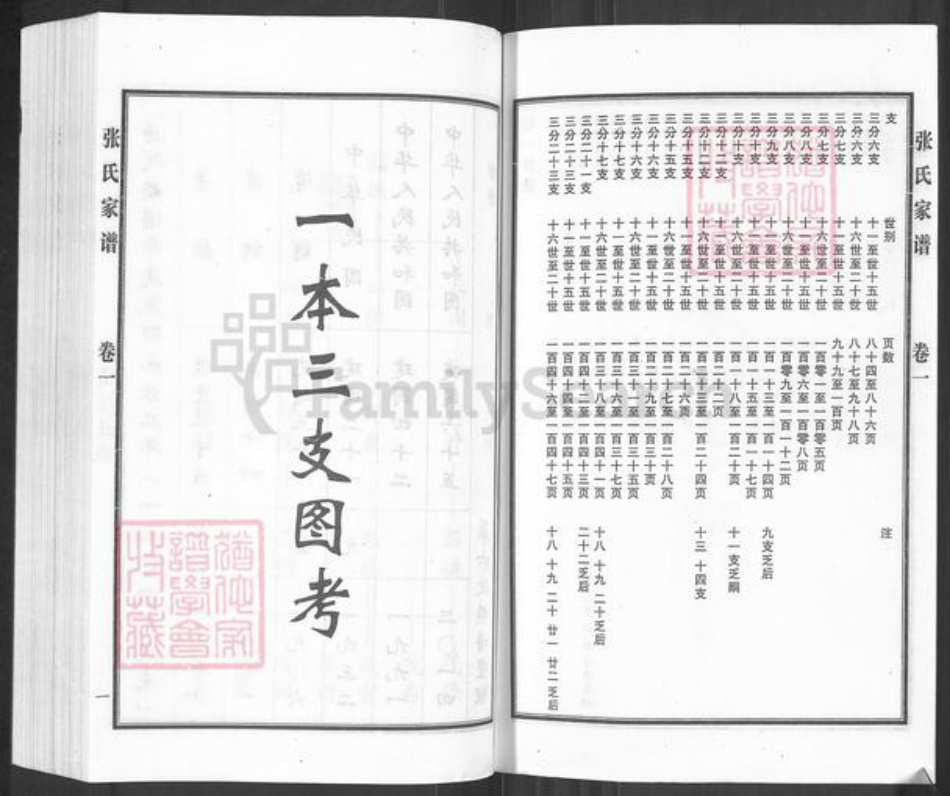 张氏家谱 卷一
支 世别 页数 注
三分六支 十一至世十五世 八十四至八十六页
三分六支 十六世至二十世 八十七至九十八页
三分七支 十一至世十五世 九十九至一百页
三分七支 十六世至二十世 一百零一至一百零五页
三分八支 十一至世十五世 一百零六至一百零八页
三分八支 十六世至二十世 一百零九至一百一十二页
三分九支 十一至世十五世 一百一十三至一百一十四页 九支乏后
三分十支 十一至世十五世 一百一十五至一百一十七页
三分十支 十六世至二十世 一百一十八至一百二十页 十一支乏嗣
三分十二支 十一至世十五世 一百二十二页
三分十二支 十六世至二十世 一百二十三至一百二十四页 十三 十四支
三分十五支 十一至世十五世 一百二十六页
三分十五支 十六世至二十世 一百二十七至一百二十八页
三分十六支 十一至世十五世 一百二十九至一百三十页
三分十六支 十六世至二十世
三分十七支 十一至世十五世 一百三十六至一百三十七页
三分十七支 十六世至二十世 一百三十八至一百四十一页 十八 十九 二十乏后
三分二十一支 十一至世十五世 一百四十二至一百四十三页 二十二乏后
三分二十三支 十一至世十五世 一百四十四至一百四十五页
三分二十三支 十六世至二十世 一百四十六至一百四十七页 十八 十九 二十 廿一 廿二乏后
一本三支图考
张氏家谱 卷一 一
猶他家
譜學會
收藏
FamilySearch